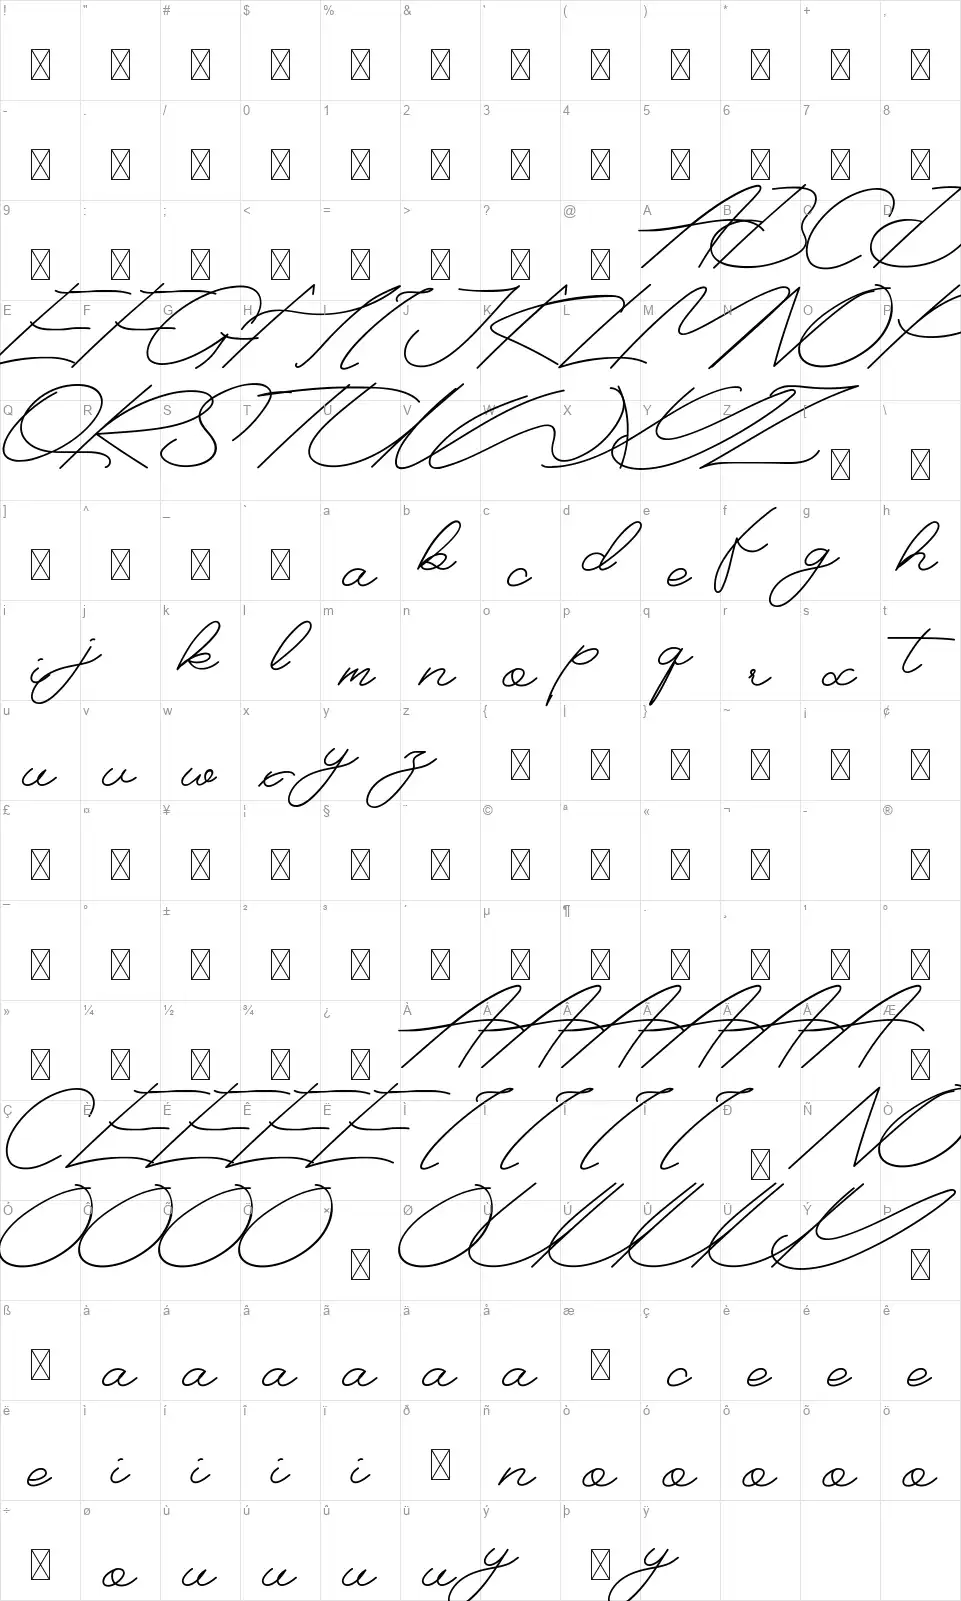 ! " # $ % & ' ( ) * + ,
- . / 0 1 2 3 4 5 6 7 8
9 : ; < = > ? @ A B C D
A B C D
E F G H I J K L M N O P
E F G H I J K L M N O P
Q R S T U V W X Y Z [ \
Q R S T U V W X Y Z
] ^ _ ` a b c d e f g h
a b c d e f g h
i j k l m n o p q r s t
i j k l m n o p q r s t
u v w x y z { | } ~ ¡ ¢
u v w x y z
£ ¤ ¥ ¦ § ¨ © ª « ¬ - ®
¯ ° ± ² ³ ´ µ ¶ · ¸ ¹ º
» ¼ ½ ¾ ¿ À Á Â Ã Ä Å Æ
A A A A A A
Ç È É Ê Ë Ì Í Î Ï Ð Ñ Ò
C E E E E I I I I N O
Ó Ô Õ Ö × Ø Ù Ú Û Ü Ý Þ
O O O O O U U U U Y
ß à á â ã ä å æ ç è é ê
a a a a a a c e e e
ë ì í î ï ð ñ ò ó ô õ ö
e i i i i n o o o o o
÷ ø ù ú û ü ý þ ÿ
o u u u u y y